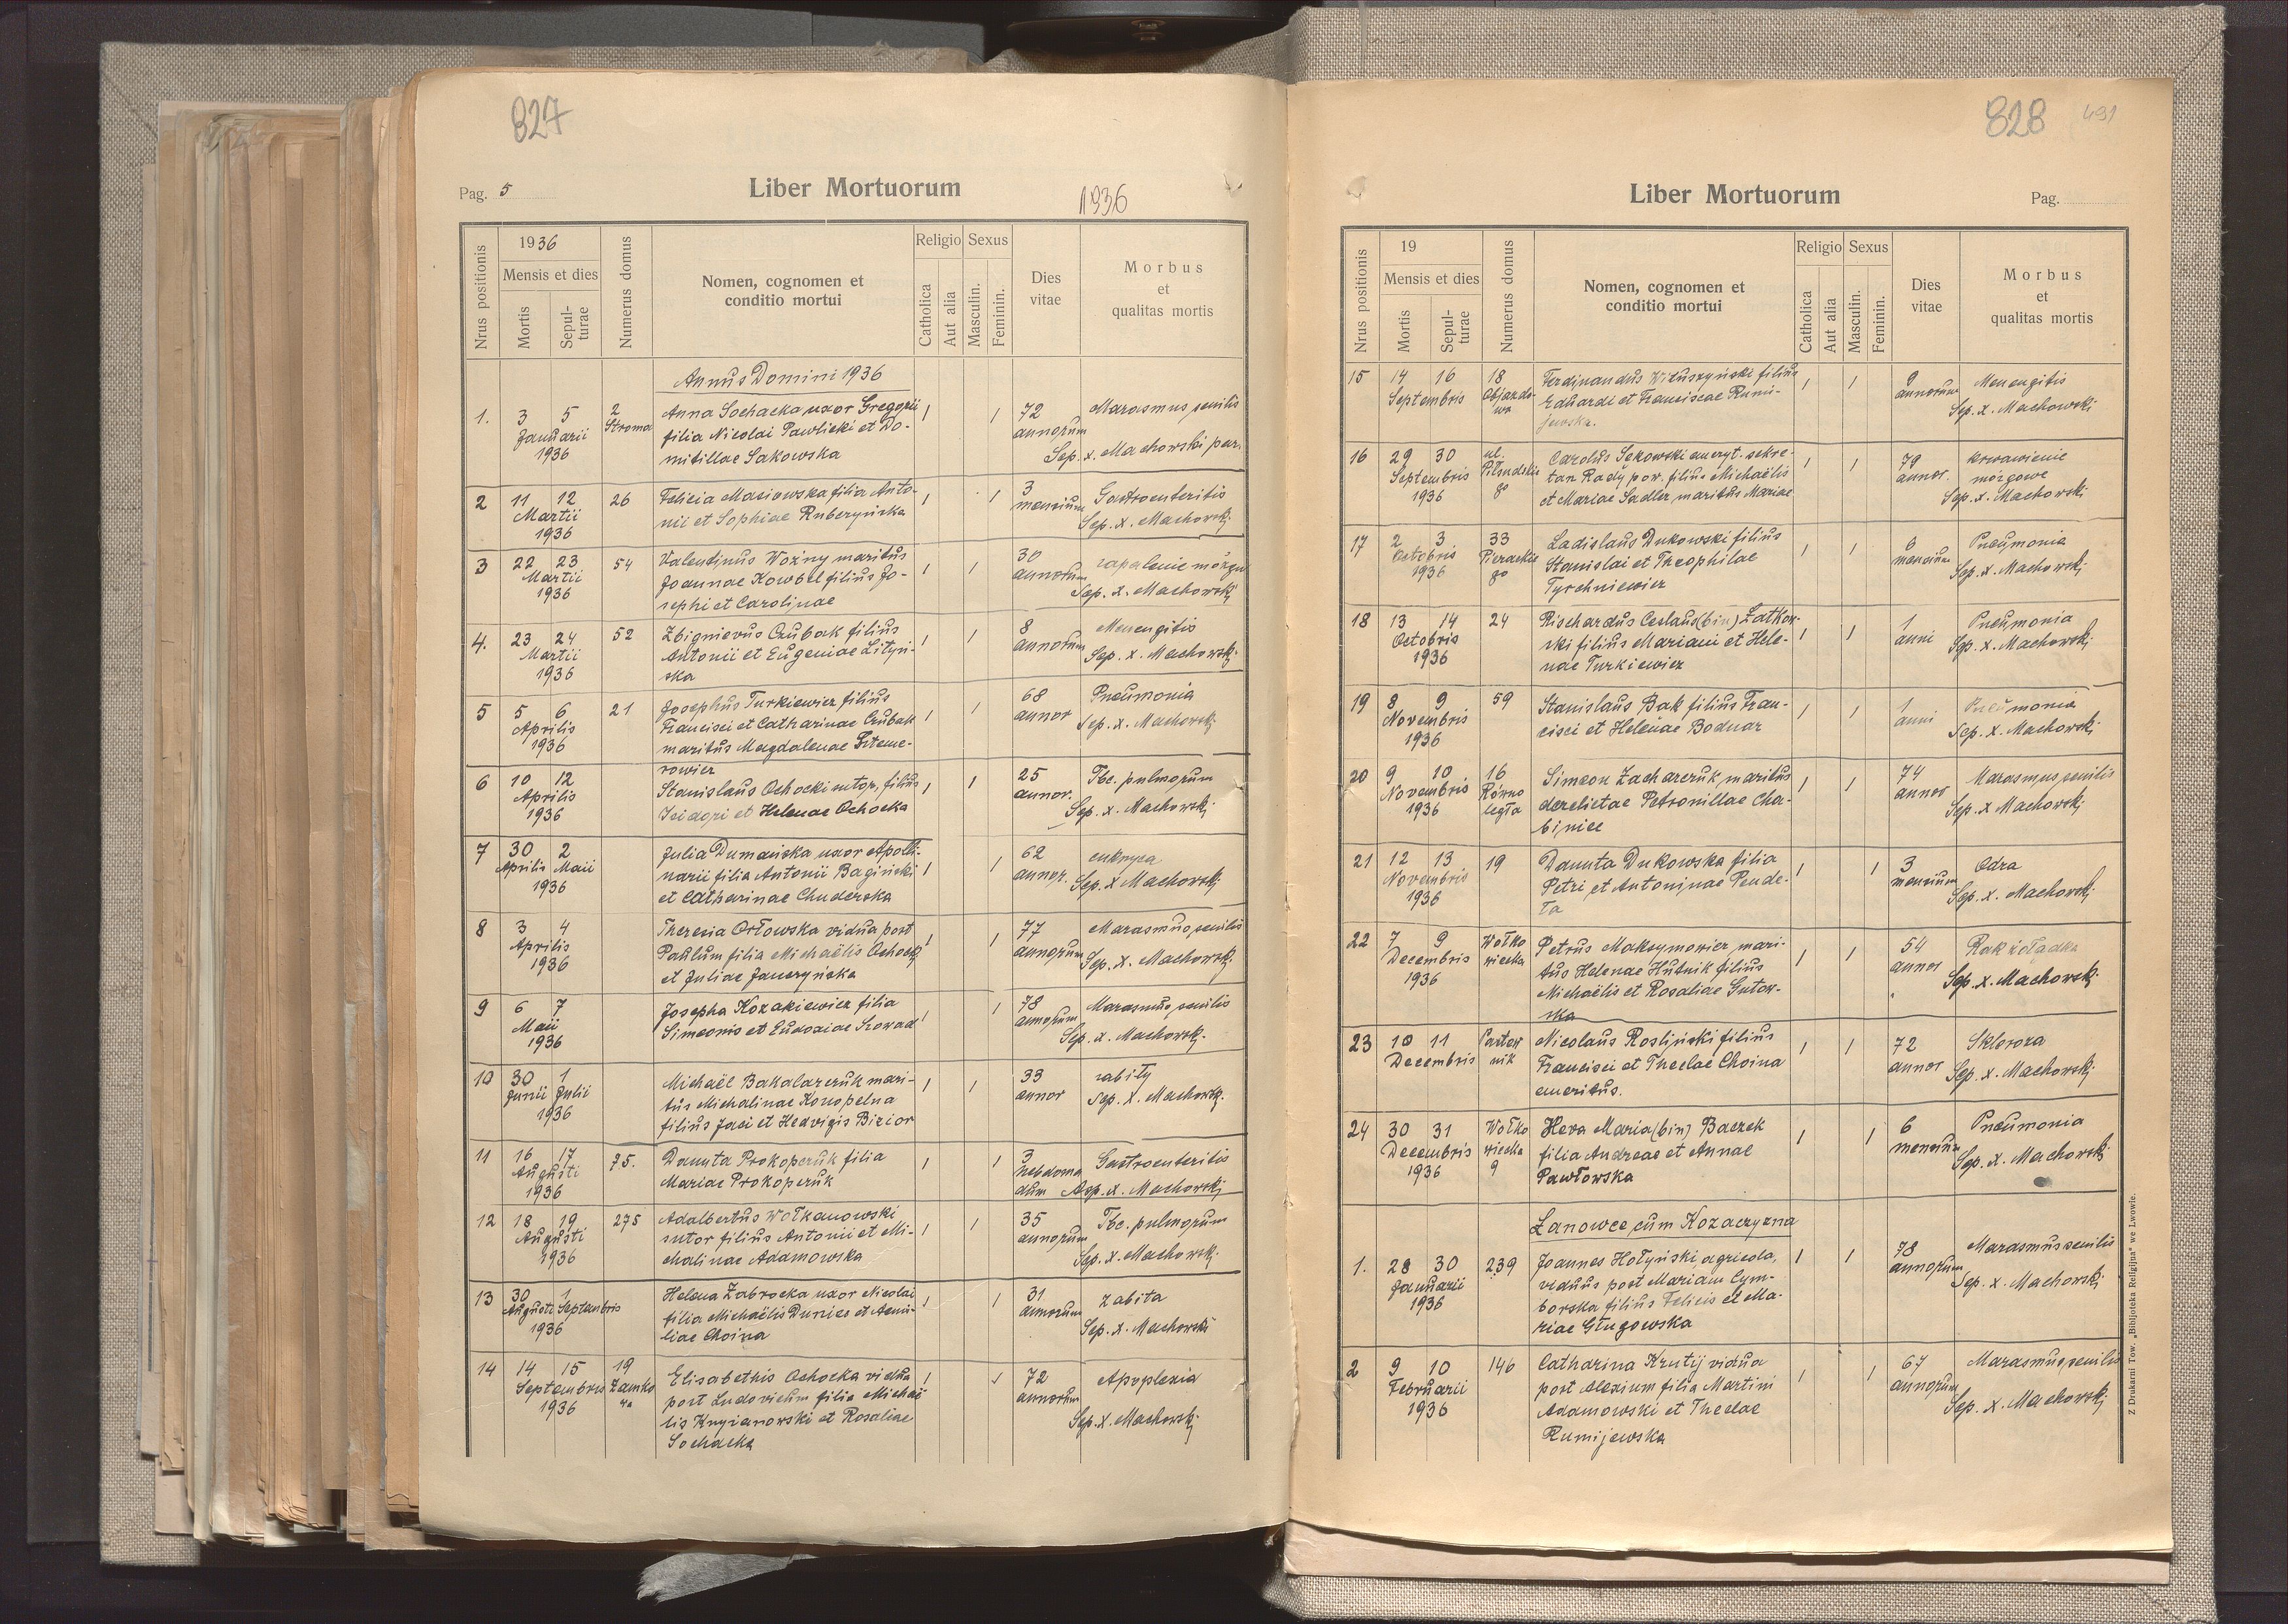 827
Pag. 5
Liber Mortuorum
1936
Nrus positionis
1936
Mensis et dies
Mortis
Sepul-
turae
Numerus domus
Nomen, cognomen et
conditio mortui
Religio
Catholica
Aut alia
Sexus
Masculin.
Feminin.
Dies
vitae
Morbus
et
qualitas mortis
Annus Domini 1936
1. 3 5 2 Anna Sochacka uxor Gregorii / / 72 Marasmus senilis
Januarii Stroma filia Nicolai Pawlicki et Do- annorum
1936 mitillae Sakowska Sep. x. Machowski par.
2 11 12 26 Felicia Masiowska filia Anto- / / 3 Gastroenteritis
Martii nii et Sophiae Ruberzyńska mensium Sep. x. Machowski
1936
3 22 23 54 Valentinus Woźny maritus / / 30 zapalenie mózgu
Martii Joannae Kowbel filius Jo- annorum
1936 sephi et Carolinae Sep. x. Machowski
4. 23 24 52 Zbignievus Czubak filius / / 8 Menengitis
Martii Antonii et Eugeniae Lityń- annorum Sep. x. Machowski
1936 ska
5 5 6 21 Josephus Turkiewicz filius / / 68 Pneumonia
Aprilis Francisci et Catharinae Czubak annor Sep. x. Machowski
1936 maritus Magdalenae
rowicz
6 10 12 Stanislaus Ochocki sutor, filius / / 25 Tbc. pulmorum
Aprilis Isidori et Helenae Ochocka annor. Sep. x. Machowski
1936
7 30 2 Julia Dumańska uxor Apolli- / / 62 cukrzyca
Aprilis Maii narii filia Antonii Bagiński annor. Sep. x Machowski
1936 et Catharinae Chuderska
8 3 4 Theresia Orłowska vidua post / / 77 Marasmus senilis
Aprilis Paulum filia Michaëlis Ochocki annorum Sep. x. Machowski
1936 et Juliae Janczyńska
9 6 7 Josepha Kozakiewicz filia / / 78 Marasmus senilis
Maii Simeonis et Eudoxiae annorum Sep. x. Machowski
1936
10 30 1 Michaël Bakalarczuk mari- / / 33 zabity
Junii Julii tus Michalinae Konopelna annor Sep. x. Machowski
1936 filius Jaci et Hedvigis Bizior
11 16 17 75. Danuta Prokopczuk filia / / 3 Gastroenteritis
Augusti Mariae Prokopczuk hebdoma
1936 dum Sep. x. Machowski
12 18 19 275 Adalbertus Wołkanowski / / 35 Tbc. pulmorum
Augusti sutor filius Antonii et Mi- annorum
1936 chalinae Adamowska Sep. x. Machowski
13 30 1 Helena Zabrocka uxor Nicolai / / 31 zabita
Augusti Septembris filia Michaëlis Dunies et Aemi- annorum
1936 liae Choina Sep. x. Machowski
14 14 15 19 Elisabethis Ochocka vidua / / 72 Apoplexia
Septembris Zamko post Ludovicum filia Michaë annorum
1936 wa lis Knyianowski et Rosaliae Sep. x. Machowski
Sochacka
828 491
Liber Mortuorum
Pag.
Nrus positionis
19
Mensis et dies
Mortis
Sepul-
turae
Numerus domus
Nomen, cognomen et
conditio mortui
Religio
Catholica
Aut alia
Sexus
Masculin.
Feminin.
Dies
vitae
Morbus
et
qualitas mortis
15 14 16 18 Ferdinandus Wituszyński filius / / 9 Menengitis
Septembris Objazdo Eduardi et Franciscae Rumi- annorum Sep. x. Machowski
wa jewska.
16 29 30 ul. Carolus Sekowski emeryt. sekre- / / 79 krwawienie
Septembris Piłsudskie tarz Rady pow. filius Michaëlis annor. mózgowe
1936 go et Mariae Sadler maritus Mariae Sep. x. Machowski
17 2 3 33 Ladislaus Dukowski filius / / 6 Pneumonia
Octobris Pierackie Stanislai et Theophilae mensium
1936 go Tyrchniewicz Sep. x. Machowski
18 13 14 24 Richardus Ceslaus (bin) Łatkow- / / 1 Pneumonia
Octobris ski filius Mariani et Hele- anni Sep. x. Machowski
1936 nae Turkiewicz
19 8 9 59 Stanislaus Bak filius Fran- / / 1 Pneumonia
Novembris cisci et Helenae Bodnar anni Sep. x. Machowski
1936
20 9 10 16 Simeon Zacharczuk maritus / / 74 Marasmus senilis
Novembris Równo derelictae Petronillae Cha- annor Sep. x Machowski
1936 legła biniec
21 12 13 19 Danuta Dukowska filia / / 3 Odra
Novembris Petri et Antoninae Pende- mensium Sep. x. Machowski
1936 ta
22 7 9 Wołko Petrus Maksymowicz mari- / / 54 Rak żołądka
Decembris wiecka tus Helenae Hutnik filius annor Sep. x. Machowski
1936 Michaëlis et Rosaliae Gutow-
ska
23 10 11 Nicolaus Rosliński filius / / 72 Skleroza
Decembris Francisci et Theclae Choina annor Sep. x. Machowski
emeritus.
24 30 31 Wołko Heva Maria (bin) Baczek / / 6 Pneumonia
Decembris wiecka filia Andreae et Annae mensium Sep. x. Machowski
1936 9 Pawłowska
Łanowce cum Kozaczyzna
1. 28 30 239 Joannes Hołyński agricola, / / 78 Marasmus senilis
Januarii viduus post Mariam Cym- annorum Sep. x. Machowski
1936 borska filius Felicis et Ma-
riae Gługowska
2 9 10 146 Catharina Krutij vidua / / 67 Marasmus senilis
Februarii post Alexium filia Martini annorum
1936 Adamowski et Theclae Sep. x. Machowski
Rumijewska
Z Drukarni Tow. „Bibljoteka Religijna" we Lwowie.